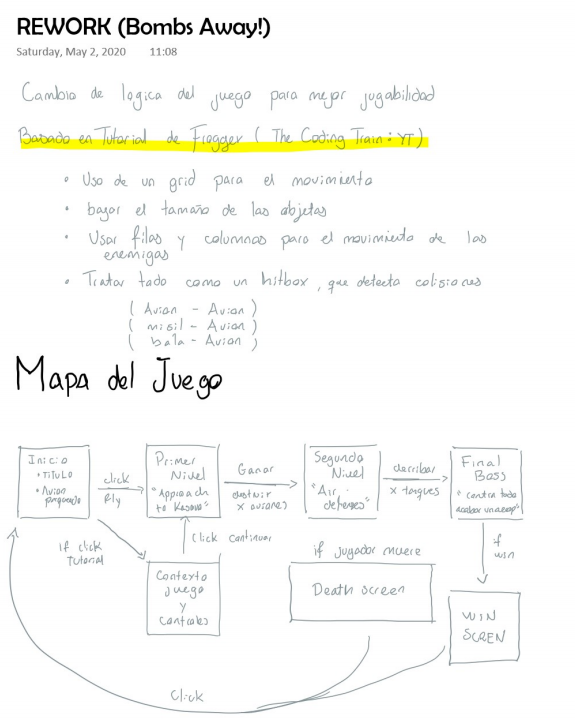 REWORK (Bombs Away!)
Saturday, May 2, 2020 11:08
Cambio de logica del juego para mejor jugabilidad
Basado en Tutorial de Frogger ( The Coding Train : YT )
• Uso de un grid para el movimiento
• bajar el tamaño de las objetas
• Usar filas y columnas para el movimiento de las
enemigas
• Tratar todo como un hitbox, que detecta colisiones
( Avion - Avion )
( misil - Avion )
( bala - Avion )
Mapa del Juego
Inicio
• TITULO
• Avion
pequeño
click
Fly
Primer
Nivel
"Approach
to Kosovo"
Ganar
destruir
x aviones
Segundo
Nivel
"Air
defenses"
derribar
x tanques
Final
Boss
" contra todo
acabar
if click
Tutorial
Click continuar
Contexto
juego
y
Controles
if jugador muere
Death screen
if
win
WIN
SCREN
Click